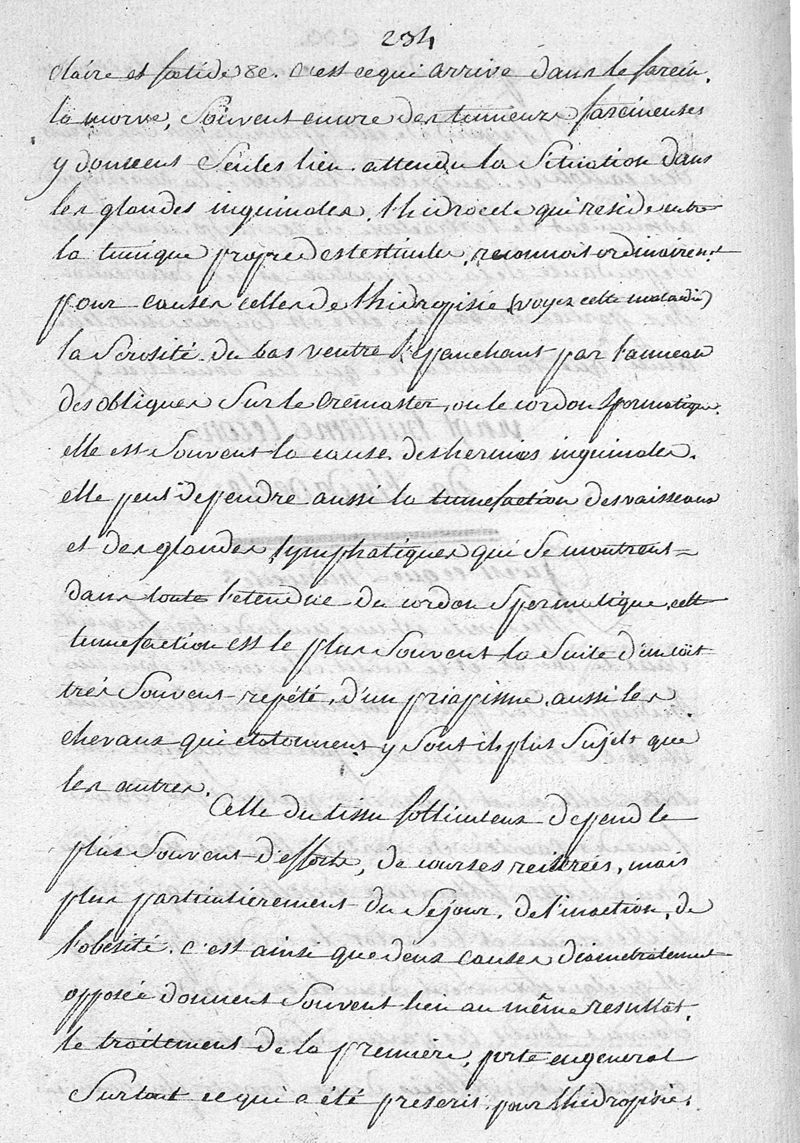 234
claire et fœtide &c. c'est ce qui arrive dans le farcin.
la morve, Souvent encore des tumeurs farcineuses
y donnent Seules lieu attendu la Situation dans
les glandes inguinales. l'hidrocele qui reside entre
la tunique propre des testicules, reconnois ordinairemt
pour causes celles de l'hidropisie (voyez cette maladie)
la Serosité du bas ventre S'epanchant par l'anneau
des obliques Sur le Crémaster, ou le cordon Spermatique.
elle est Souvent la cause des hernies inguinales.
elle peut dependre aussi la tumefaction des vaisseaux
et des glandes lymphatiques qui Se montrent =
dans toute l'etendue du cordon Spermatique, cette
tumefaction est le plus Souvent la Suite d'un coït
tres Souvent repété, d'un priapisme. aussi les
chevaux qui etalonnent y Sont ils plus Sujets que
les autres.
Celle du tissu folliculeux depend le
plus Souvent d'efforts, de courses reiterées, mais
plus particulierement du Sejour, de l'inaction, de
l'obésité. c'est ainsi que deux causes diametralement
opposée donnent Souvent lieu au même resultat.
le traitement de la première, porte en general
Surtout ce qui a été prescris pour l'hidropisie.